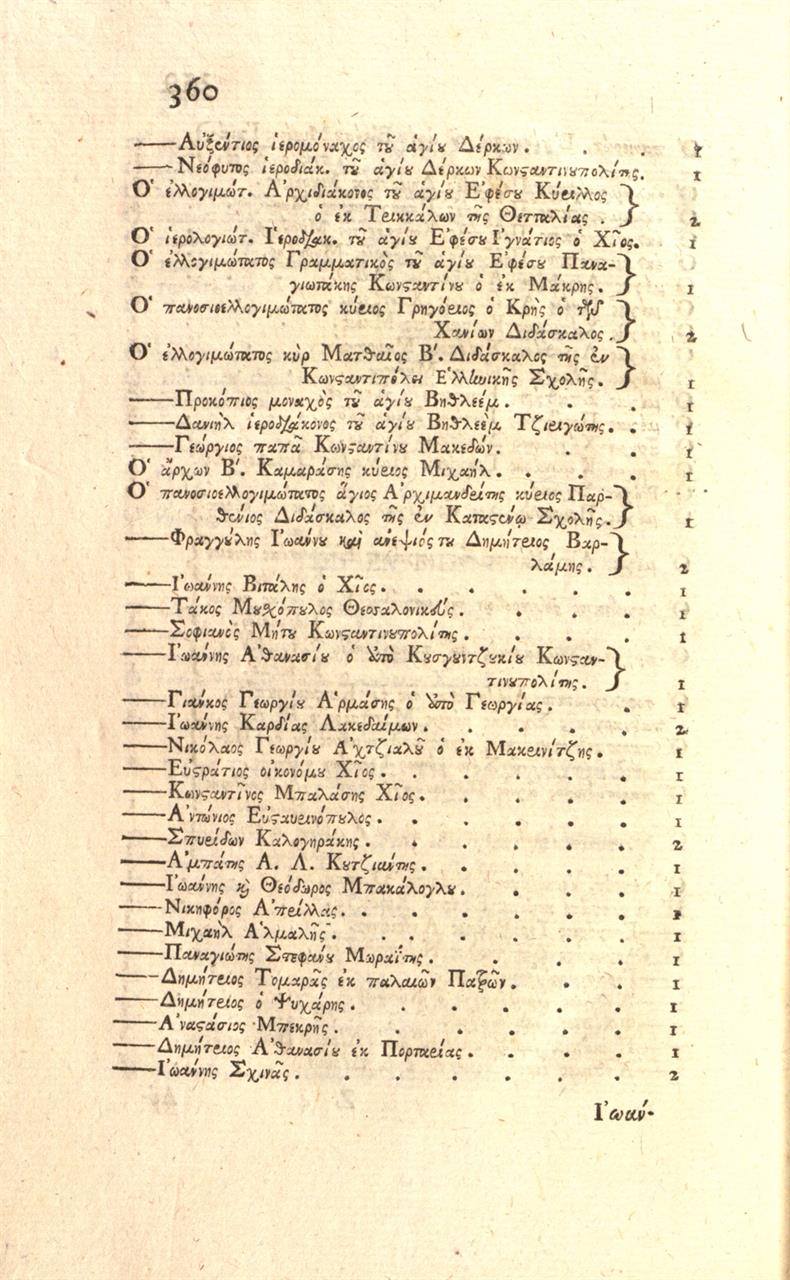 360
——Αὐξέντιος ἱερομόναχος τȣ͂ ἁγίȣ Δέρκων. . . 1
——Νεόφυτος ἱεροδιάκ. τȣ͂ ἁγίȣ Δέρκων Κωνϛαντινȣπολίτης. 1
Ὁ ἐλλογιμώτ. Ἀρχιδιάκονος τȣ͂ ἁγίȣ Ἐφέσȣ Κύριλλος
ὁ ἐκ Τρικκάλων τῆς Θετταλίας . 2
Ὁ ἱερολογιώτ. Ἱεροδιακ. τȣ͂ ἁγίȣ Ἐφέσȣ Ἰγνάτιος ὁ Χῖος. 1
Ὁ ἐλλογιμώτατος Γραμματικὸς τȣ͂ ἁγίȣ Ἐφέσȣ Πανα-
γιωτάκης Κωνϛαντίνȣ ὁ ἐκ Μάκρης. 1
Ὁ πανοσιοελλογιμώτατος κύριος Γρηγόριος ὁ Κρὴς ὁ τῶν
Χανίων Διδάσκαλος. 2
Ὁ ἐλλογιμώτατος κὺρ Ματθαῖος Β΄. Διδάσκαλος τῆς ἐν
Κωνϛαντιπόλει Ἑλληνικῆς Σχολῆς. 1
——Προκόπιος μοναχὸς τȣ͂ ἁγίȣ Βηθλεέμ. . . 1
——Δανιὴλ ἱεροδιάκονος τȣ͂ ἁγίȣ Βηθλεὲμ Τζιριγώτης. . 1
——Γεώργιος παπᾶ Κωνϛαντίνȣ Μακεδών. . . 1
Ὁ ἄρχων Β΄. Καμαράσης κύριος Μιχαήλ. . . . 1
Ὁ πανοσιοελλογιμώτατος ἅγιος Ἀρχιμανδρίτης κύριος Παρ-
θένιος Διδάσκαλος τῆς ἐν Καταϛένῳ Σχολῆς. 1
——Φραγγȣ́λης Ἰωάννȣ καὶ ἀνεψιός τȣ Δημήτριος Βαρ-
λάμης. 2
——Ἰωάννης Βιτάλης ὁ Χῖος. . . . . . 1
——Τάκος Μȣχόπȣλος Θεσσαλονικεύς. . . . 1
——Σοφιανὸς Μήτȣ Κωνϛαντινȣπολίτης. . . . 1
——Ἰωάννης Ἀθανασίȣ ὁ ἀπὸ Κȣσγȣντζȣκίȣ Κωνϛαν-
τινȣπολίτης. 1
——Γιάνκος Γεωργίȣ Ἀρμάσης ὁ ἀπὸ Γεωργίας. . 1
——Ἰωάννης Καρδίας Λακεδαίμων. . . . . 2
——Νικόλαος Γεωργίȣ Ἀχτζιαλȣ͂ ὁ ἐκ Μακρινίτζης. 1
——Εὐϛράτιος οἰκονόμȣ Χῖος. . . . . . 1
——Κωνϛαντῖνος Μπαλάσης Χῖος. . . . . 1
——Ἀντώνιος Εὐϛαυρινόπȣλος. . . . . . 1
——Σπυρίδων Καλογηράκης. . . . . . 2
——Ἀμπάτης Α. Λ. Κȣτζιαύτης. . . . . 1
——Ἰωάννης κ̀ Θεόδωρος Μπακάλογλȣ. . . . 1
——Νικηφόρος Ἀπέλλας. . . . . . . 1
——Μιχαὴλ Ἀλμαλῆς. . . . . . . 1
——Παναγιώτης Στεφάνȣ Μωραΐτης. . . . 1
——Δημήτριος Τομαρᾶς ἐκ παλαιῶν Πατρῶν. . . 1
——Δημήτριος ὁ Ψυχάρης. . . . . . 1
——Ἀναϛάσιος Μπεκρῆς. . . . . . 1
——Δημήτριος Ἀθανασίȣ ἐκ Πορταρίας. . . . 1
——Ἰωάννης Σχινᾶς. . . . . . . 2
Ἰωάν-